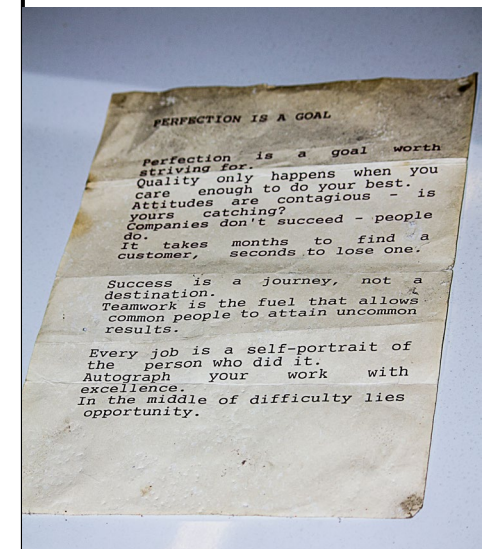 PERFECTION IS A GOAL
Perfection is a goal worth
striving for.
Quality only happens when you
care enough to do your best.
Attitudes are contagious - is
yours catching?
Companies don't succeed - people
do.
It takes months to find a
customer, seconds to lose one.
Success is a journey, not a
destination.
Teamwork is the fuel that allows
common people to attain uncommon
results.
Every job is a self-portrait of
the person who did it.
Autograph your work with
excellence.
In the middle of difficulty lies
opportunity.